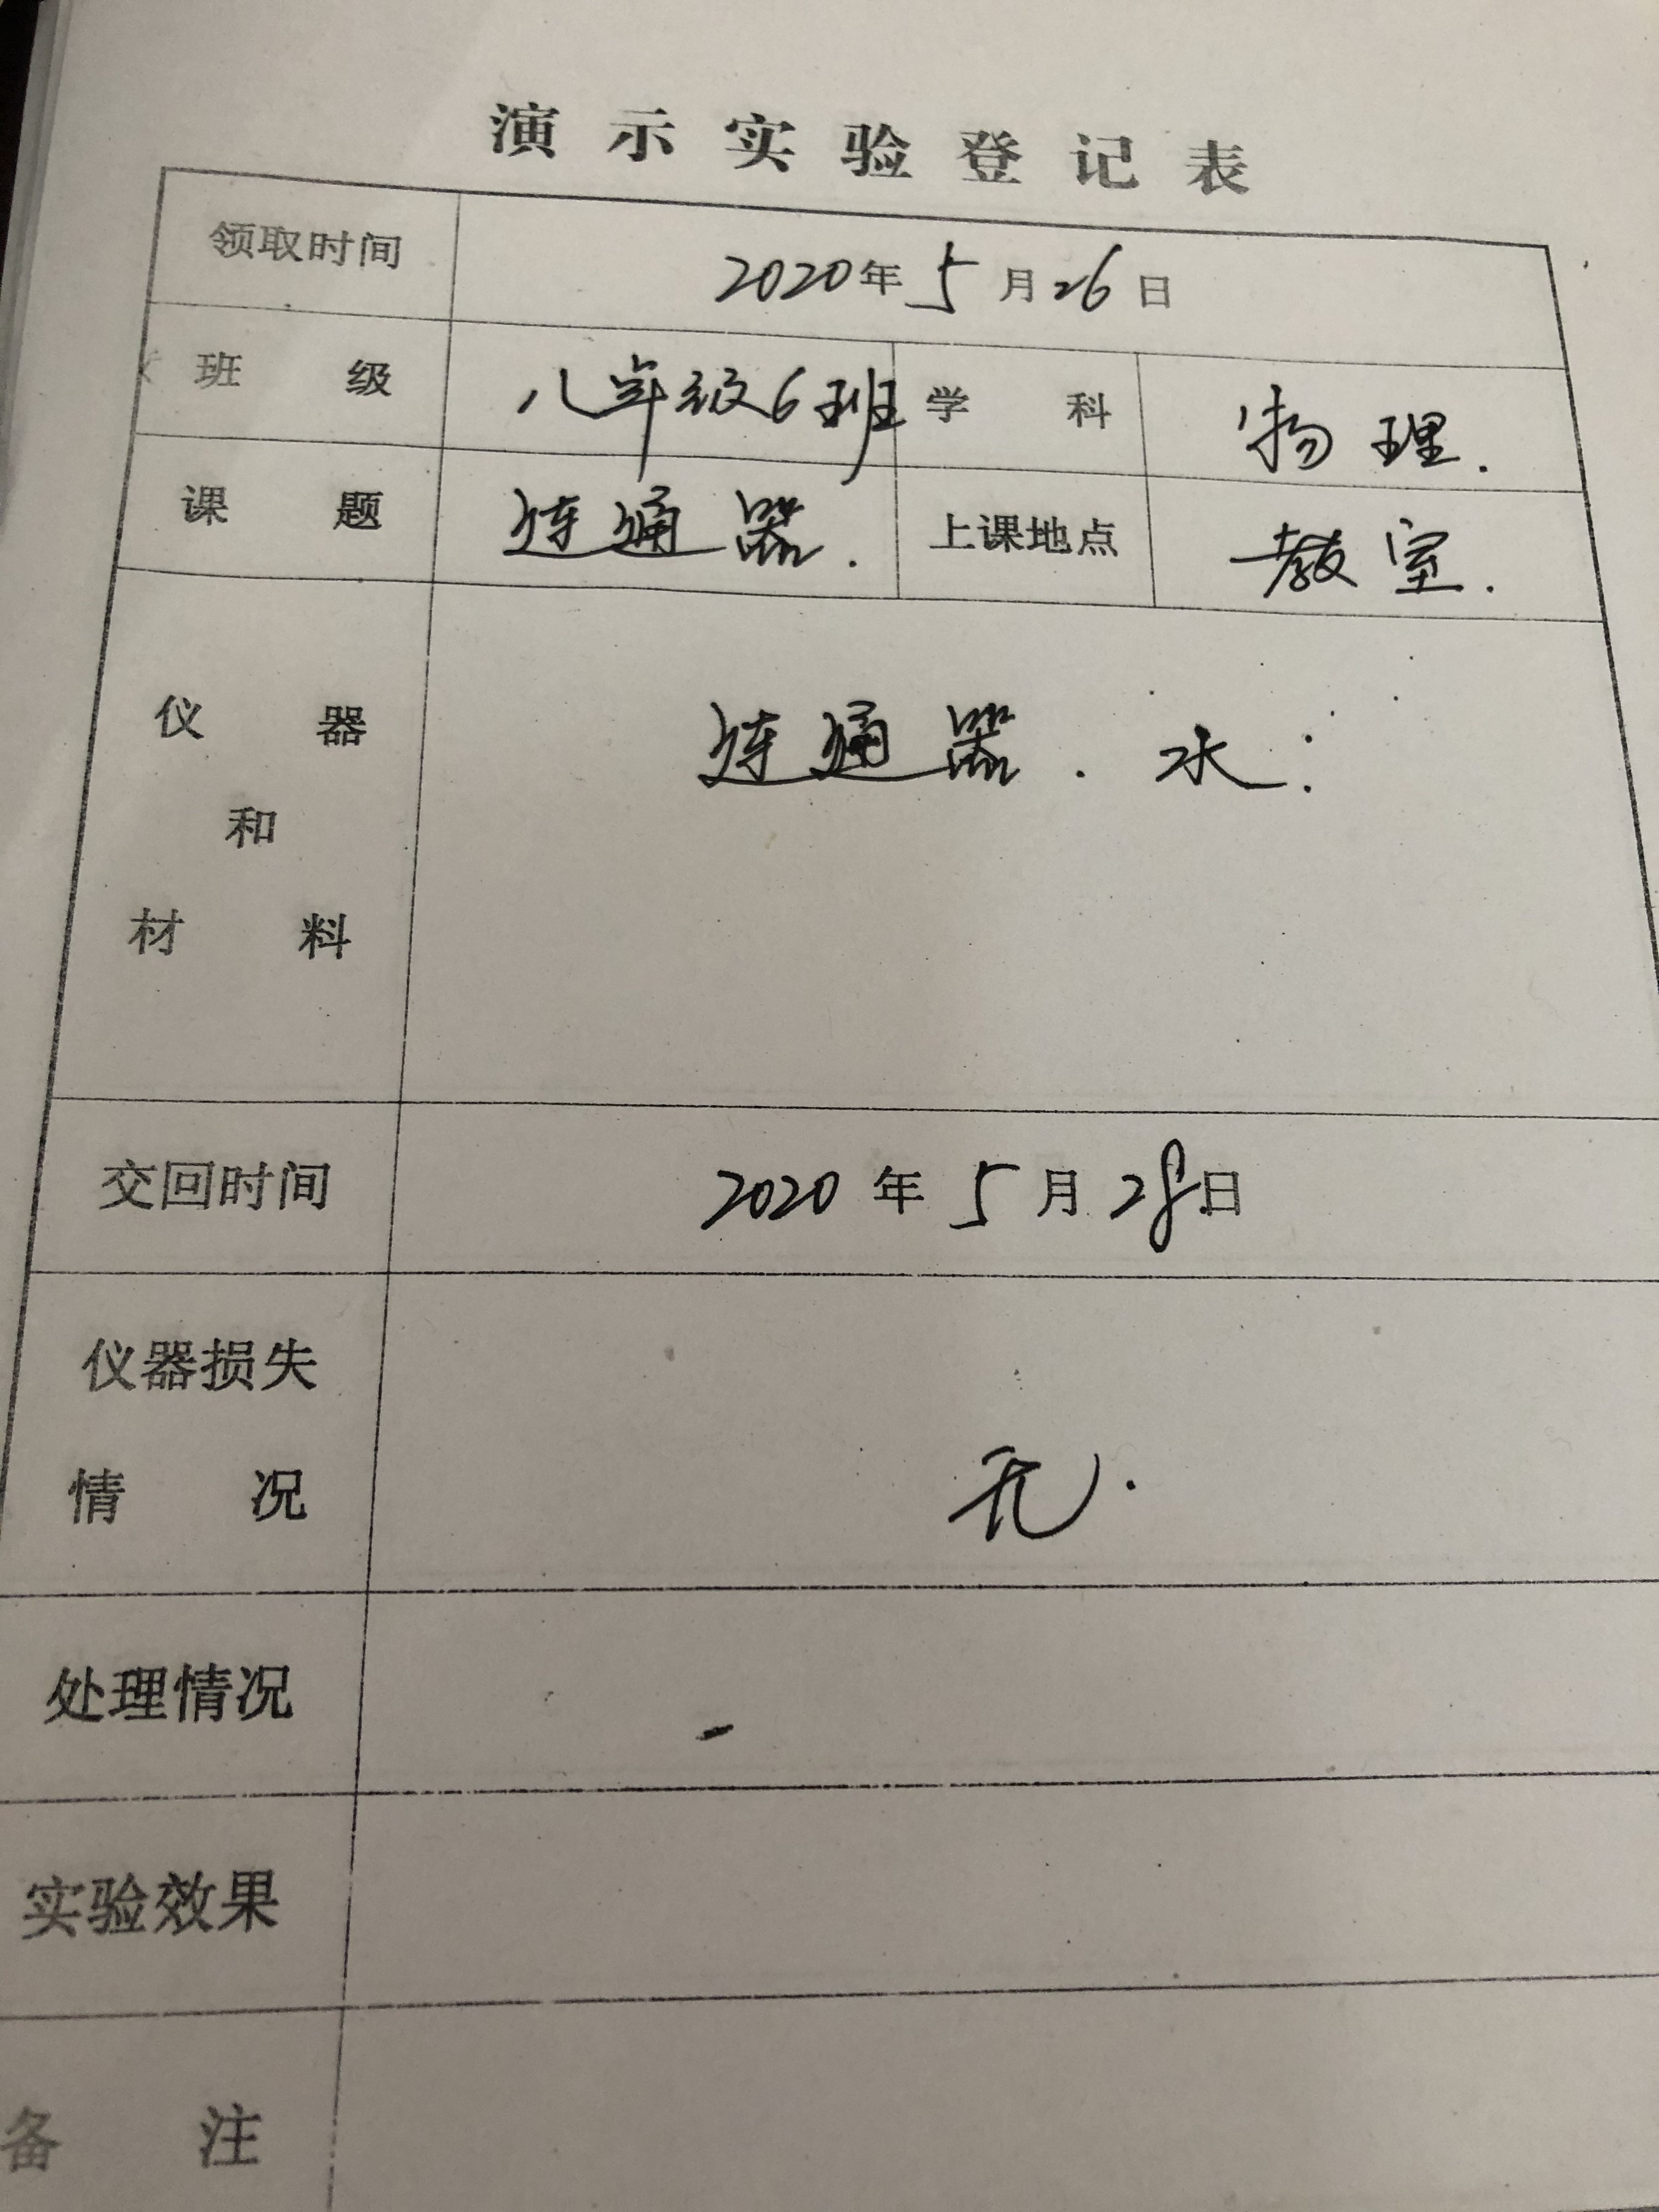 演示实验登记表
领取时间 2020年5月26日
班级 八年级6班 学科 物理.
课题 连通器. 上课地点 教室.
仪器
和
材料
连通器.水.
交回时间 2020年5月28日
仪器损失
情况
无.
处理情况 -
实验效果
备注